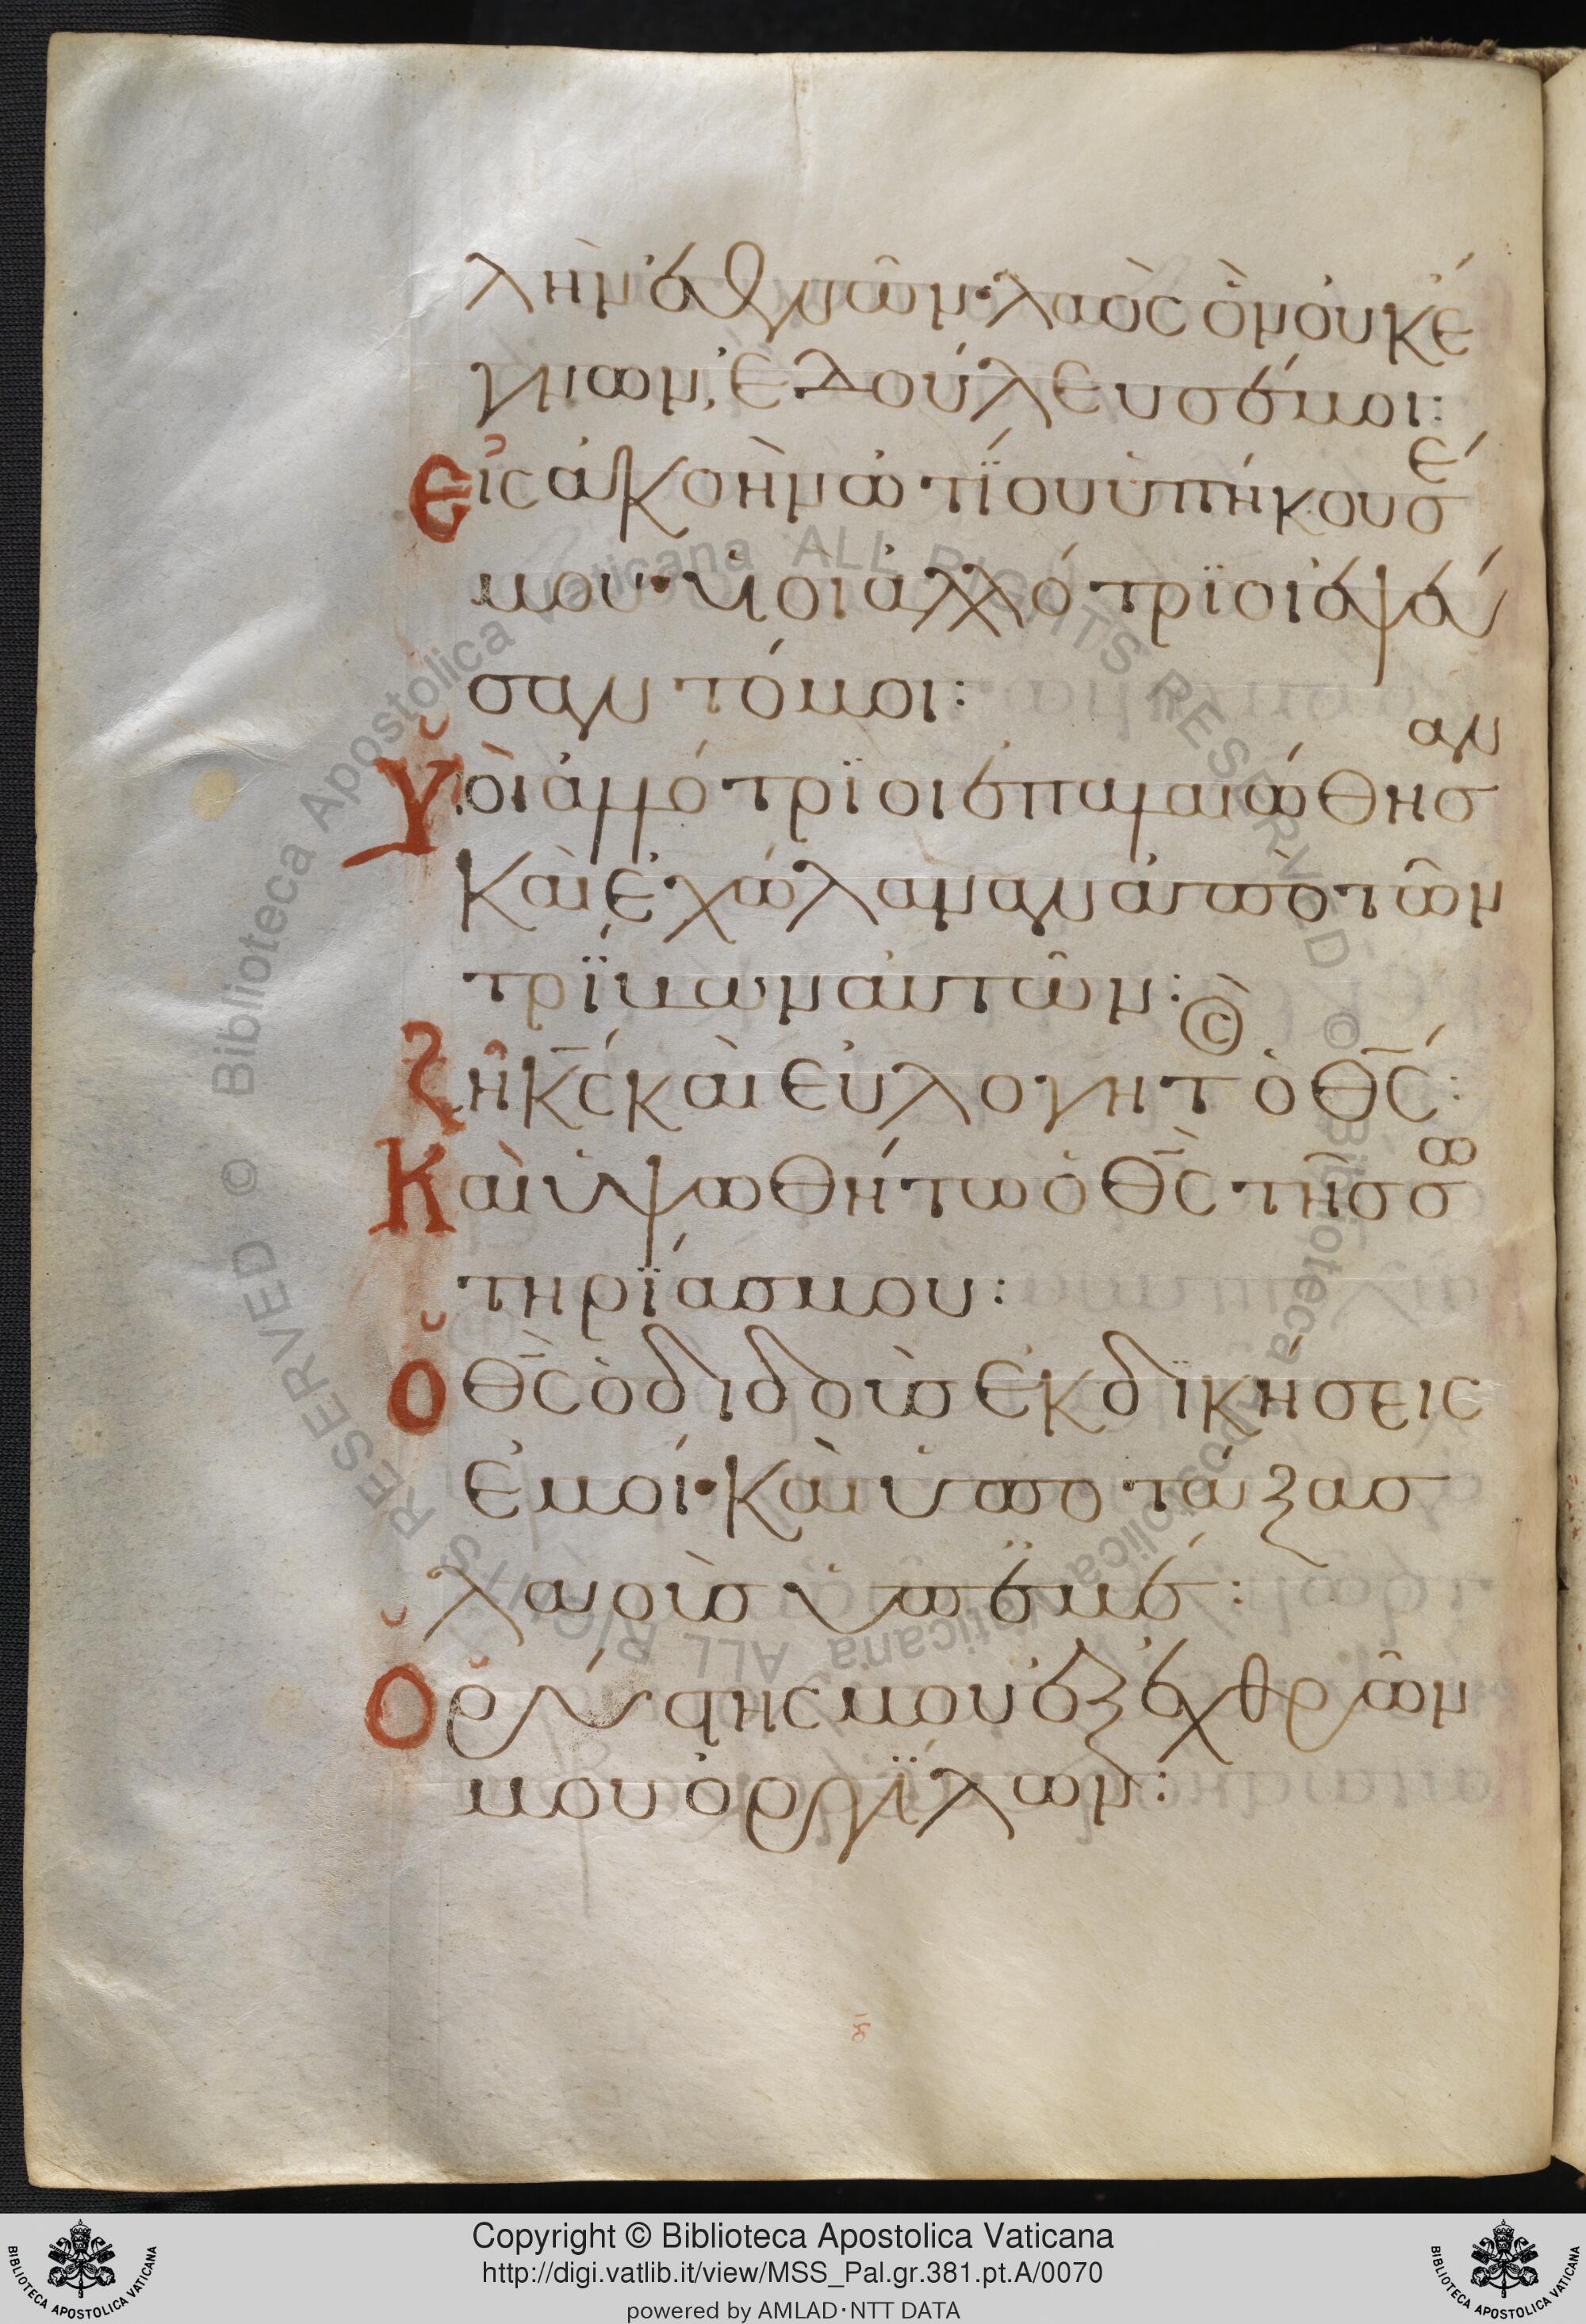 λὴν ἐθνῶν· λαὸς ὃν οὐκ ἔ
γνων, ἐδούλευσέ μοι:
Εἰς ἀκοὴν ὠτίου ὑπήκουσέ
μου· καὶ οἱ ἀλλότριοι ἐψεύ
σαντό μοι:
Υἱοὶ ἀλλότριοι ἐπαλαιώθησαν
καὶ ἐχώλαναν ἀπὸ τῶν
τρίβων αὐτῶν:
Ζῆ κ̅ς̅ καὶ εὐλογητὸς ὁ θ̅ς̅:
Καὶ ὑψωθήτω ὁ θ̅ς̅ τῆς σω
τηρίας μου:
Ὁ θ̅ς̅ ὁ διδοὺς ἐκδικήσεις
ἐμοί· καὶ ὑποτάξας
λαοὺς ὑπ' ἐμέ:
Ὁ ῥύστης μου ἐξ ἐχθρῶν
μου ὀργίλων:
Copyright © Biblioteca Apostolica Vaticana
http://digi.vatlib.it/view/MSS_Pal.gr.381.pt.A/0070
powered by AMLAD·NTT DATA
BIBLIOTECA APOSTOLICA VATICANA
BIBLIOTECA APOSTOLICA VATICANA
© Biblioteca Apostolica Vaticana ALL RIGHTS RESERVED © Biblioteca Apostolica Vaticana ALL RIGHTS RESERVED